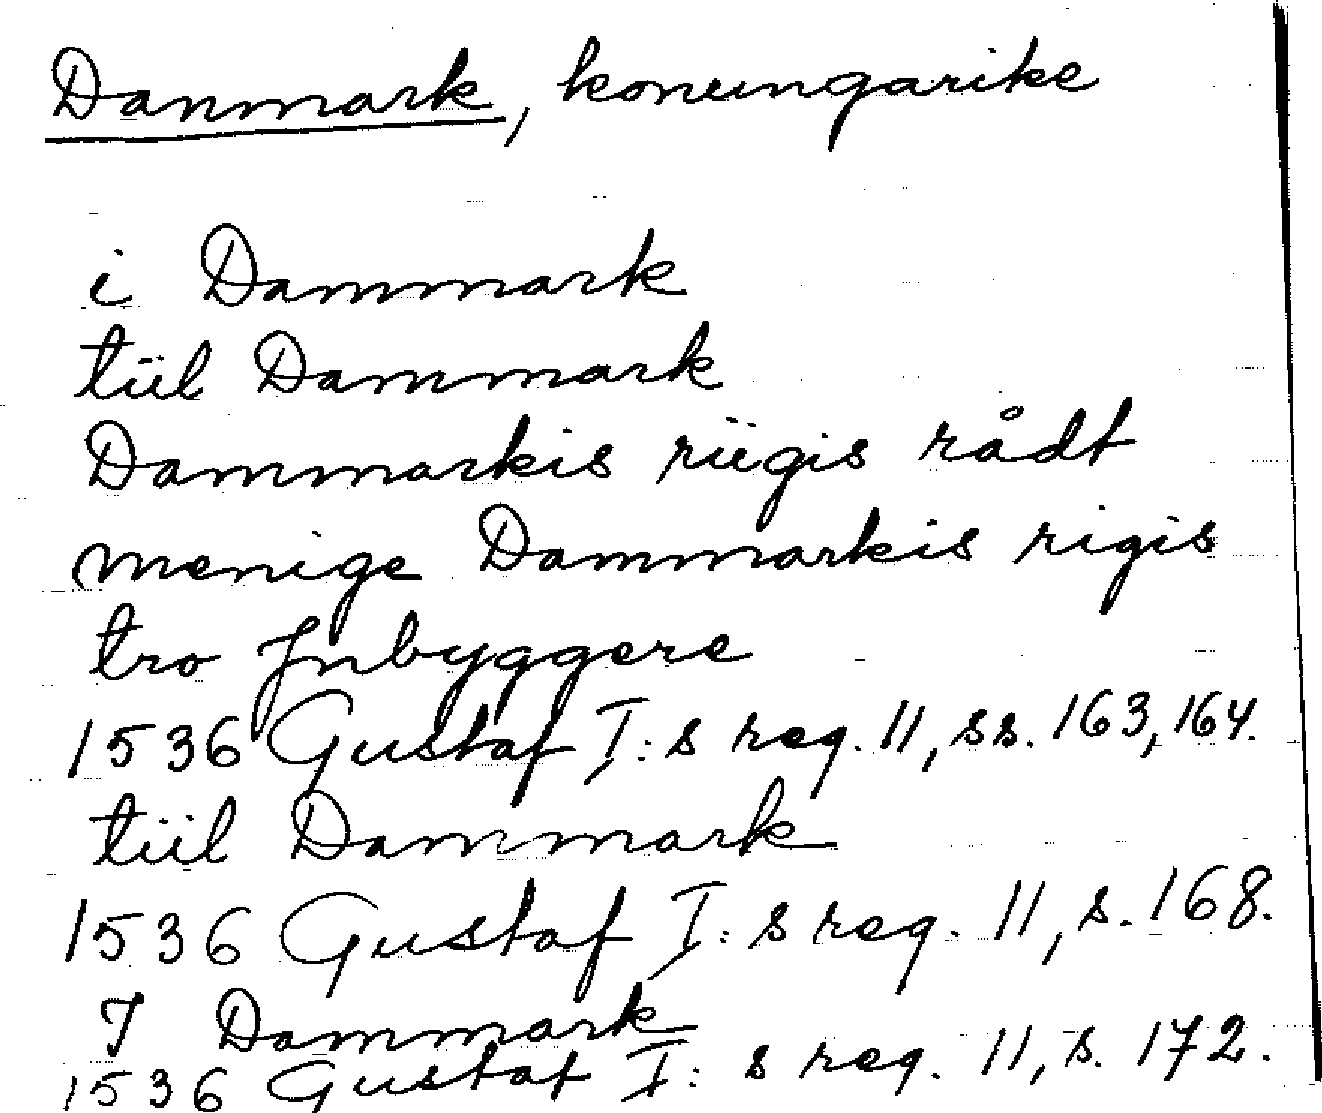 Danmark, konungarike
i Dammark
tiil Dammark
Dammarkis riigis rådt
menige Dammarkis rigis
tro Jnbyggere
1536 Gustaf I:s reg. 11, ss. 163, 164.
tiil Dammark
1536 Gustaf I:s reg. 11, s. 168.
I Dammark
1536 Gustaf I:s reg. 11, s. 172.